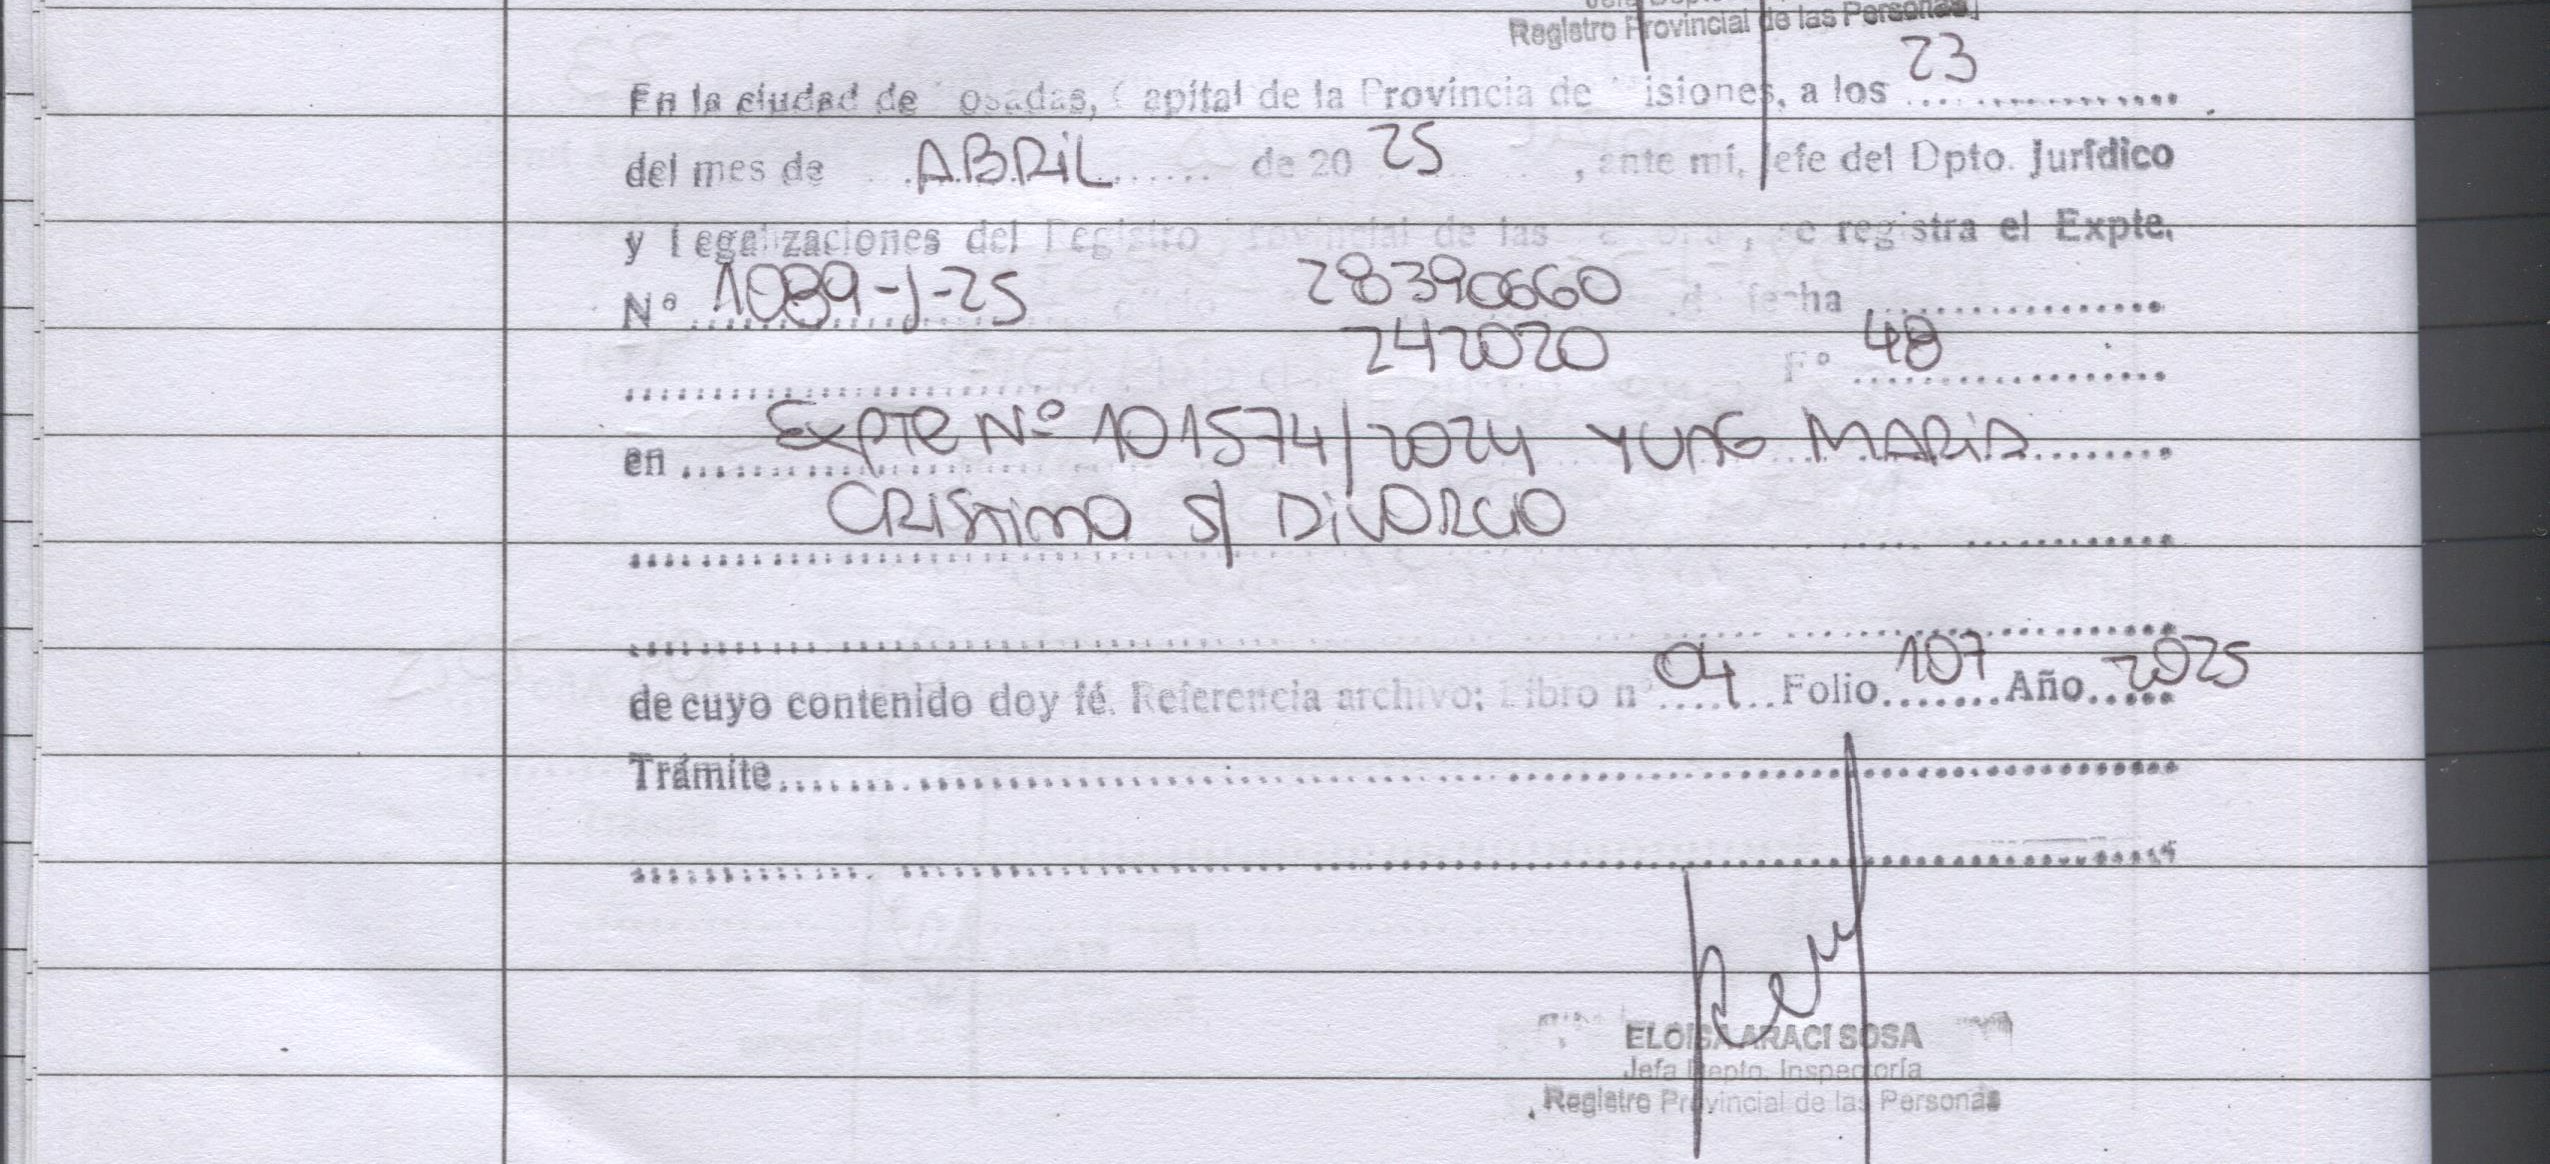 Registro Provincial de las Personas
En la ciudad de osadas, Capital de la Provincia de isiones, a los 23
del mes de ABRIL de 2025, ante mí, Jefe del Dpto. Jurídico
y Legalizaciones del Registro Provincial de las se registra el Expte.
Nº 1089-J-25 28390660 de fecha
242020 Fº 48
en Expte Nº 101574/2024 YUNG MARIA
CRISTINA S/ DIVORCIO
de cuyo contenido doy fé. Referencia archivo: Libro nº 04 Folio 107 Año 2025
Trámite
ELOISA ARACI SOSA
Jefa Depto. Inspectoría
Registro Provincial de las Personas